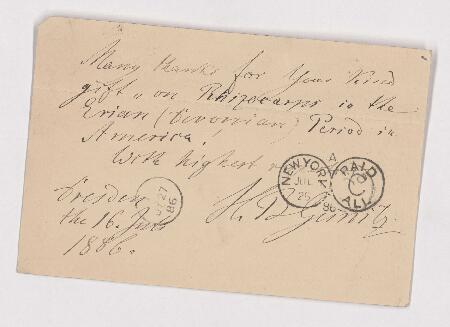 Many thanks for your kind
gift, on Rhizocarps in the
Erian (Devonian) Period in
America!
With highest
Dresden
the 16.
1886.
H. B. Geinitz
27
86
NEW YORK
JUL
26
86
A
PAID
C
ALL